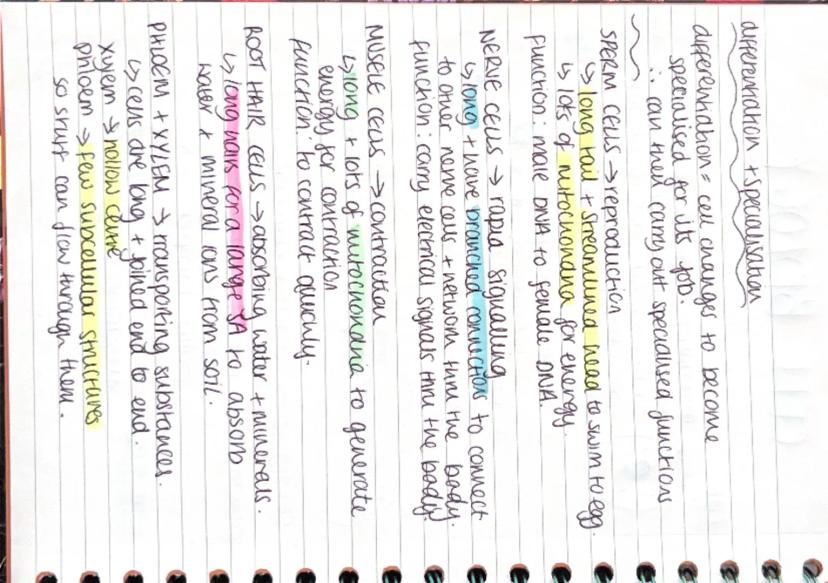 differentiation + specialisation
differentiation = cell changes to become
specialised for its job.
∴ can then carry out specialised functions
SPERM CELLS → reproduction
↳ long tail + streamlined head to swim to egg.
↳ lots of mitochondria for energy.
function: male DNA to female DNA.
NERVE CELLS → rapid signalling
↳ long + have branched connections to connect
to other nerve cells + network thru the body.
function: carry electrical signals thru the body.
MUSCLE CELLS → contraction
↳ long + lots of mitochondria to generate
energy for contraction
function: to contract quickly.
ROOT HAIR CELLS → absorbing water + minerals.
↳ long hairs for a large SA to absorb
water + mineral ions from soil.
PHLOEM + XYLEM → transporting substances.
↳ cells are long + joined end to end.
xylem → hollow centre
phloem → few subcellular structures
so stuff can flow through them.